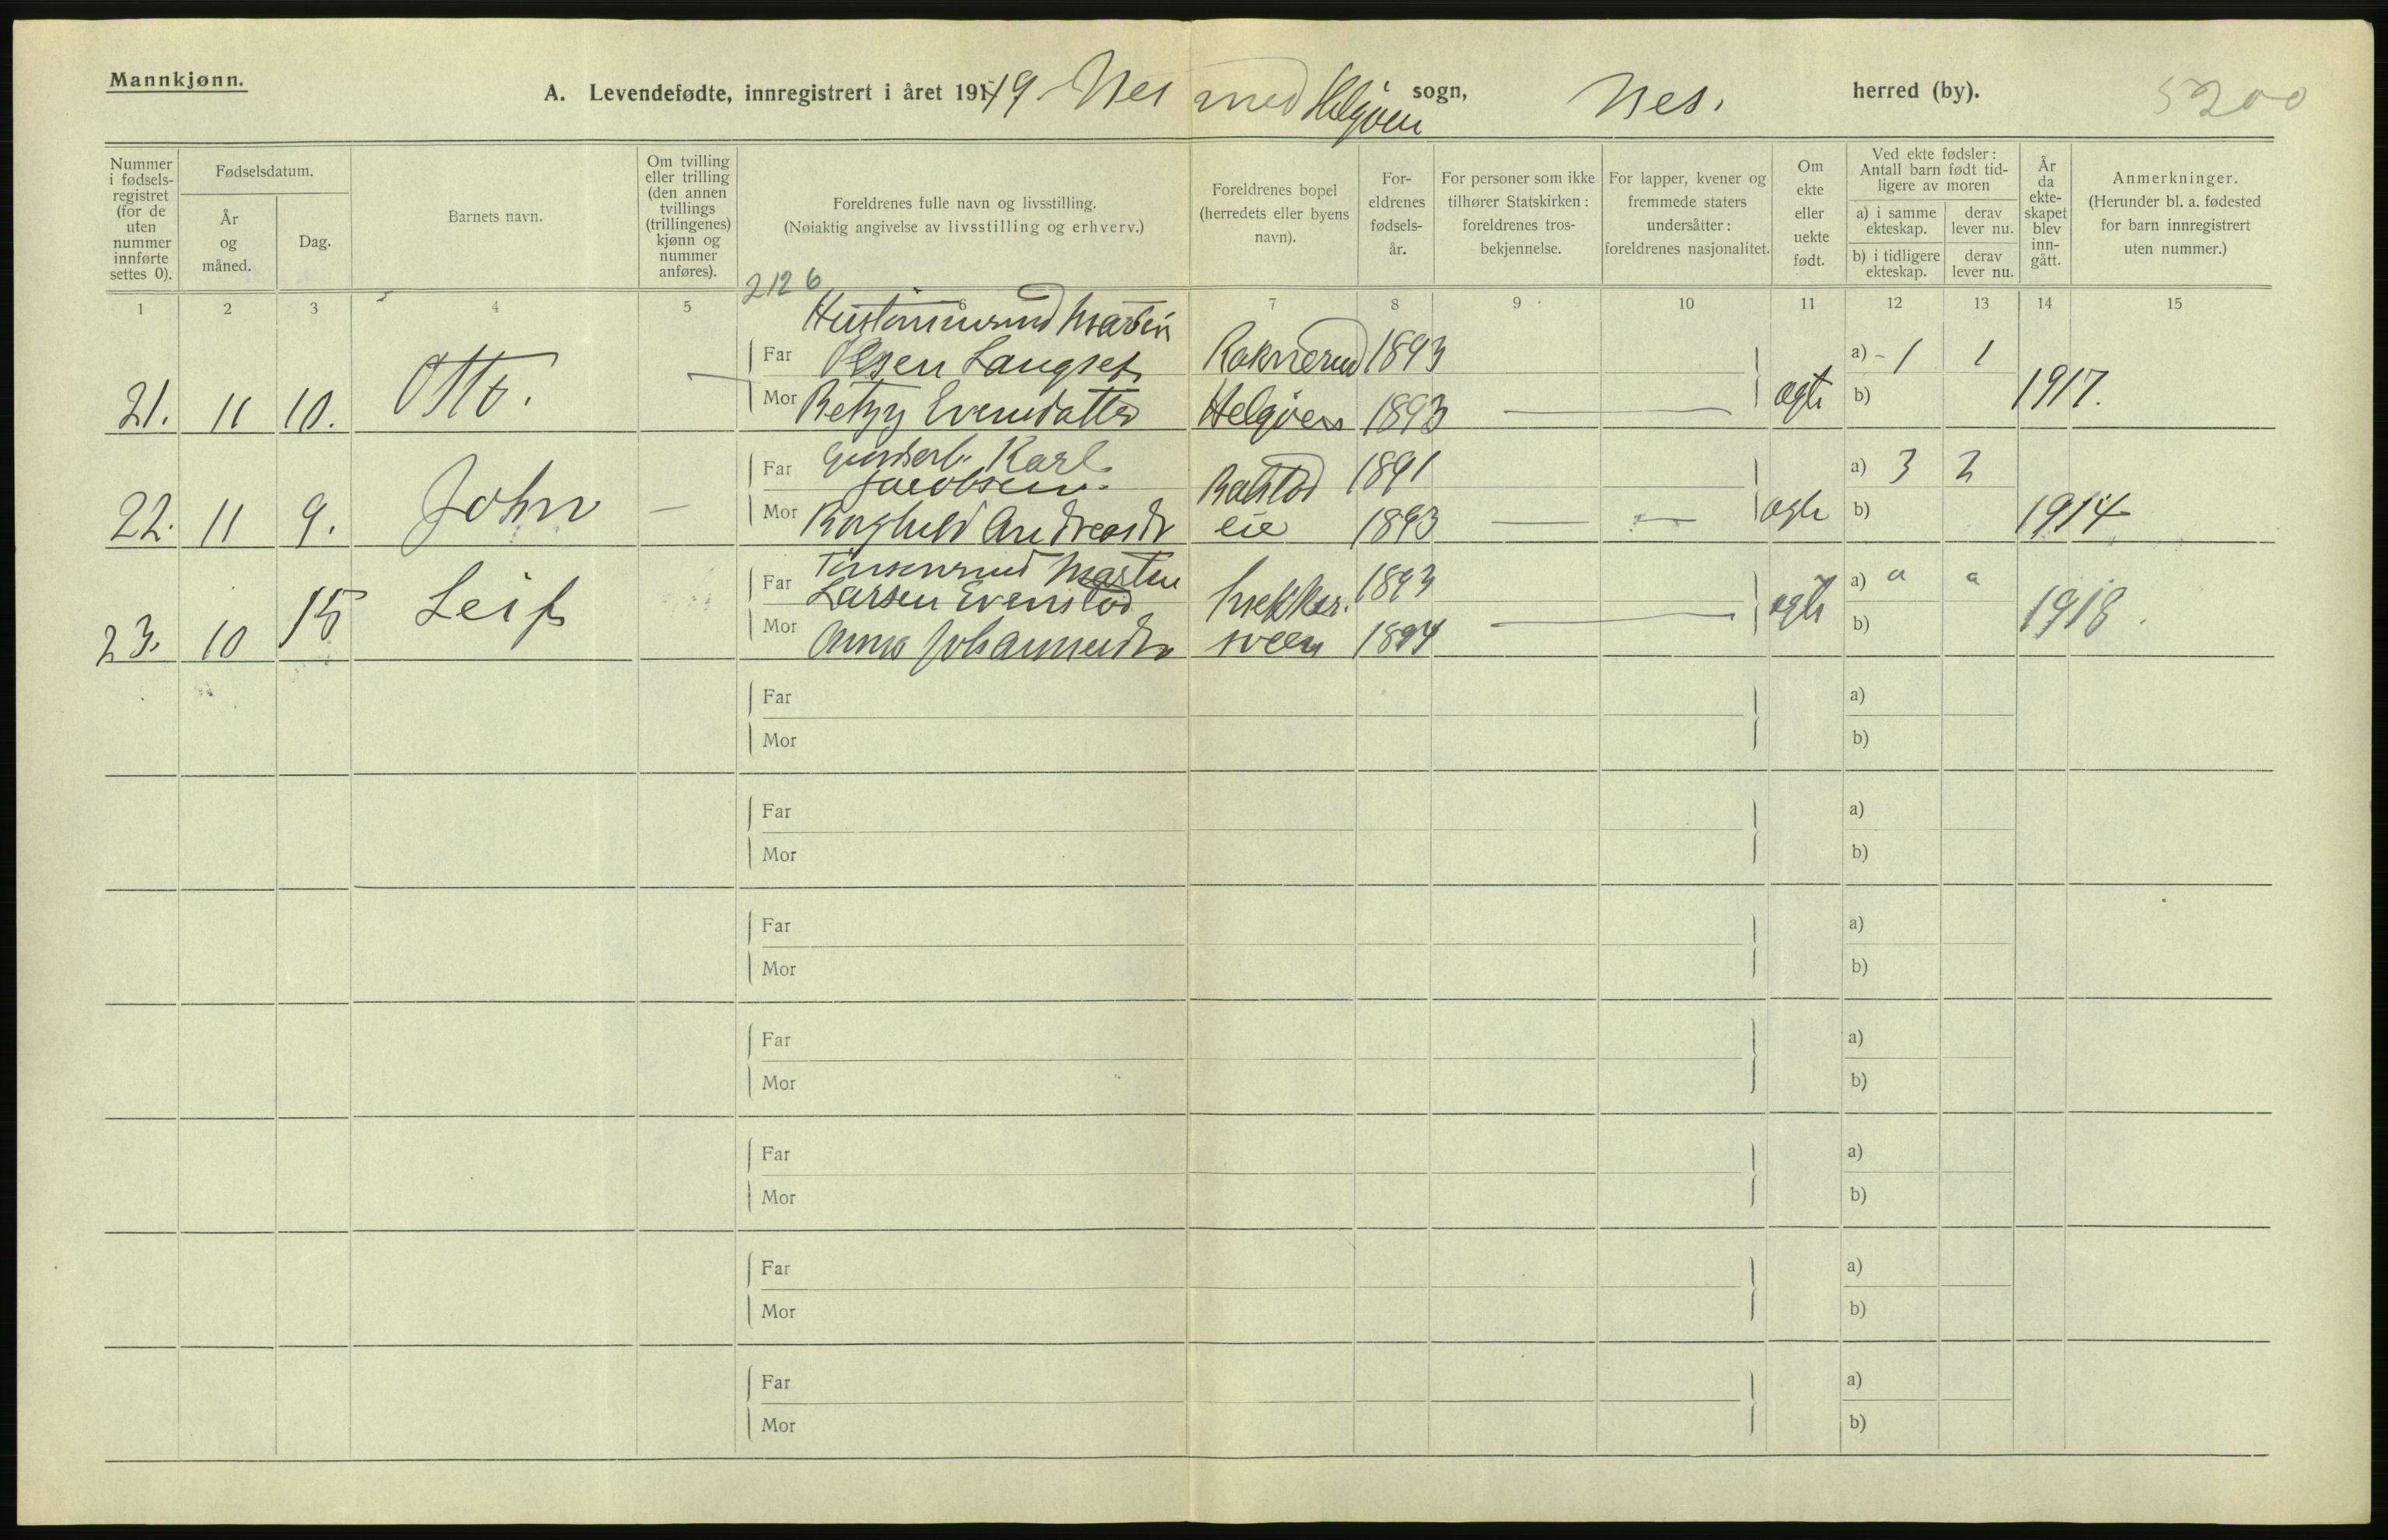 Mannkjønn.
A. Levendefødte, innregistrert i året 1919. Nes med Helgøen sogn, Nes. herred (by). 5200
Nummer i fødsels-registret (for de uten nummer innførte settes 0).
Fødselsdatum.
År og måned.
Dag.
Barnets navn.
Om tvilling eller trilling (den annen tvillings (trillingenes) kjønn og nummer anføres).
Foreldrenes fulle navn og livsstilling.
(Nøiaktig angivelse av livsstilling og erhverv.)
Foreldrenes bopel (herredets eller byens navn).
For-eldrenes fødsels-år.
For personer som ikke tilhører Statskirken: foreldrenes tros-bekjennelse.
For lapper, kvener og fremmede staters undersåtter: foreldrenes nasjonalitet.
Om ekte eller uekte født.
Ved ekte fødsler: Antall barn født tid-ligere av moren
a) i samme ekteskap.
derav lever nu.
b) i tidligere ekteskap.
derav lever nu.
År da ekte-skapet blev inn-gått.
Anmerkninger.
(Herunder bl. a. fødested for barn innregistrert uten nummer.)
2126
1 2 3 4 5 6 7 8 9 10 11 12 13 14 15
Martin
21. 11 10. Otto. — Far Olsen Langset 1893 a) - 1 1
Mor Evensdatter Helgøen 1893 — ægte b) 1917.
Far Karl 1891 a) 3 2
Jacobsen.
22. 11 9. John — Mor Borghild Andreasdr eie 1893 — — ægte b) 1914
Martin
23. 10 15 Leif Far Larsen Evenstad 1893 a) 0 0
Mor Anna Johannesdr sveen 1894 — ægte b) 1918.
Far a)
Mor b)
Far a)
Mor b)
Far a)
Mor b)
Far a)
Mor b)
Far a)
Mor b)
Far a)
Mor b)
Far a)
Mor b)